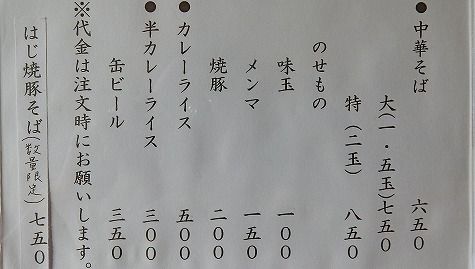 ●中華そば 六五0
大(一・五玉)七五0
特(二玉) 八五0
のせもの
味玉 一00
メンマ 一五0
焼豚 二00
●カレーライス 五00
●半カレーライス 三00
缶ビール 三五0
※代金は注文時にお願いします。
はじ焼豚そば(数量限定) 七五0